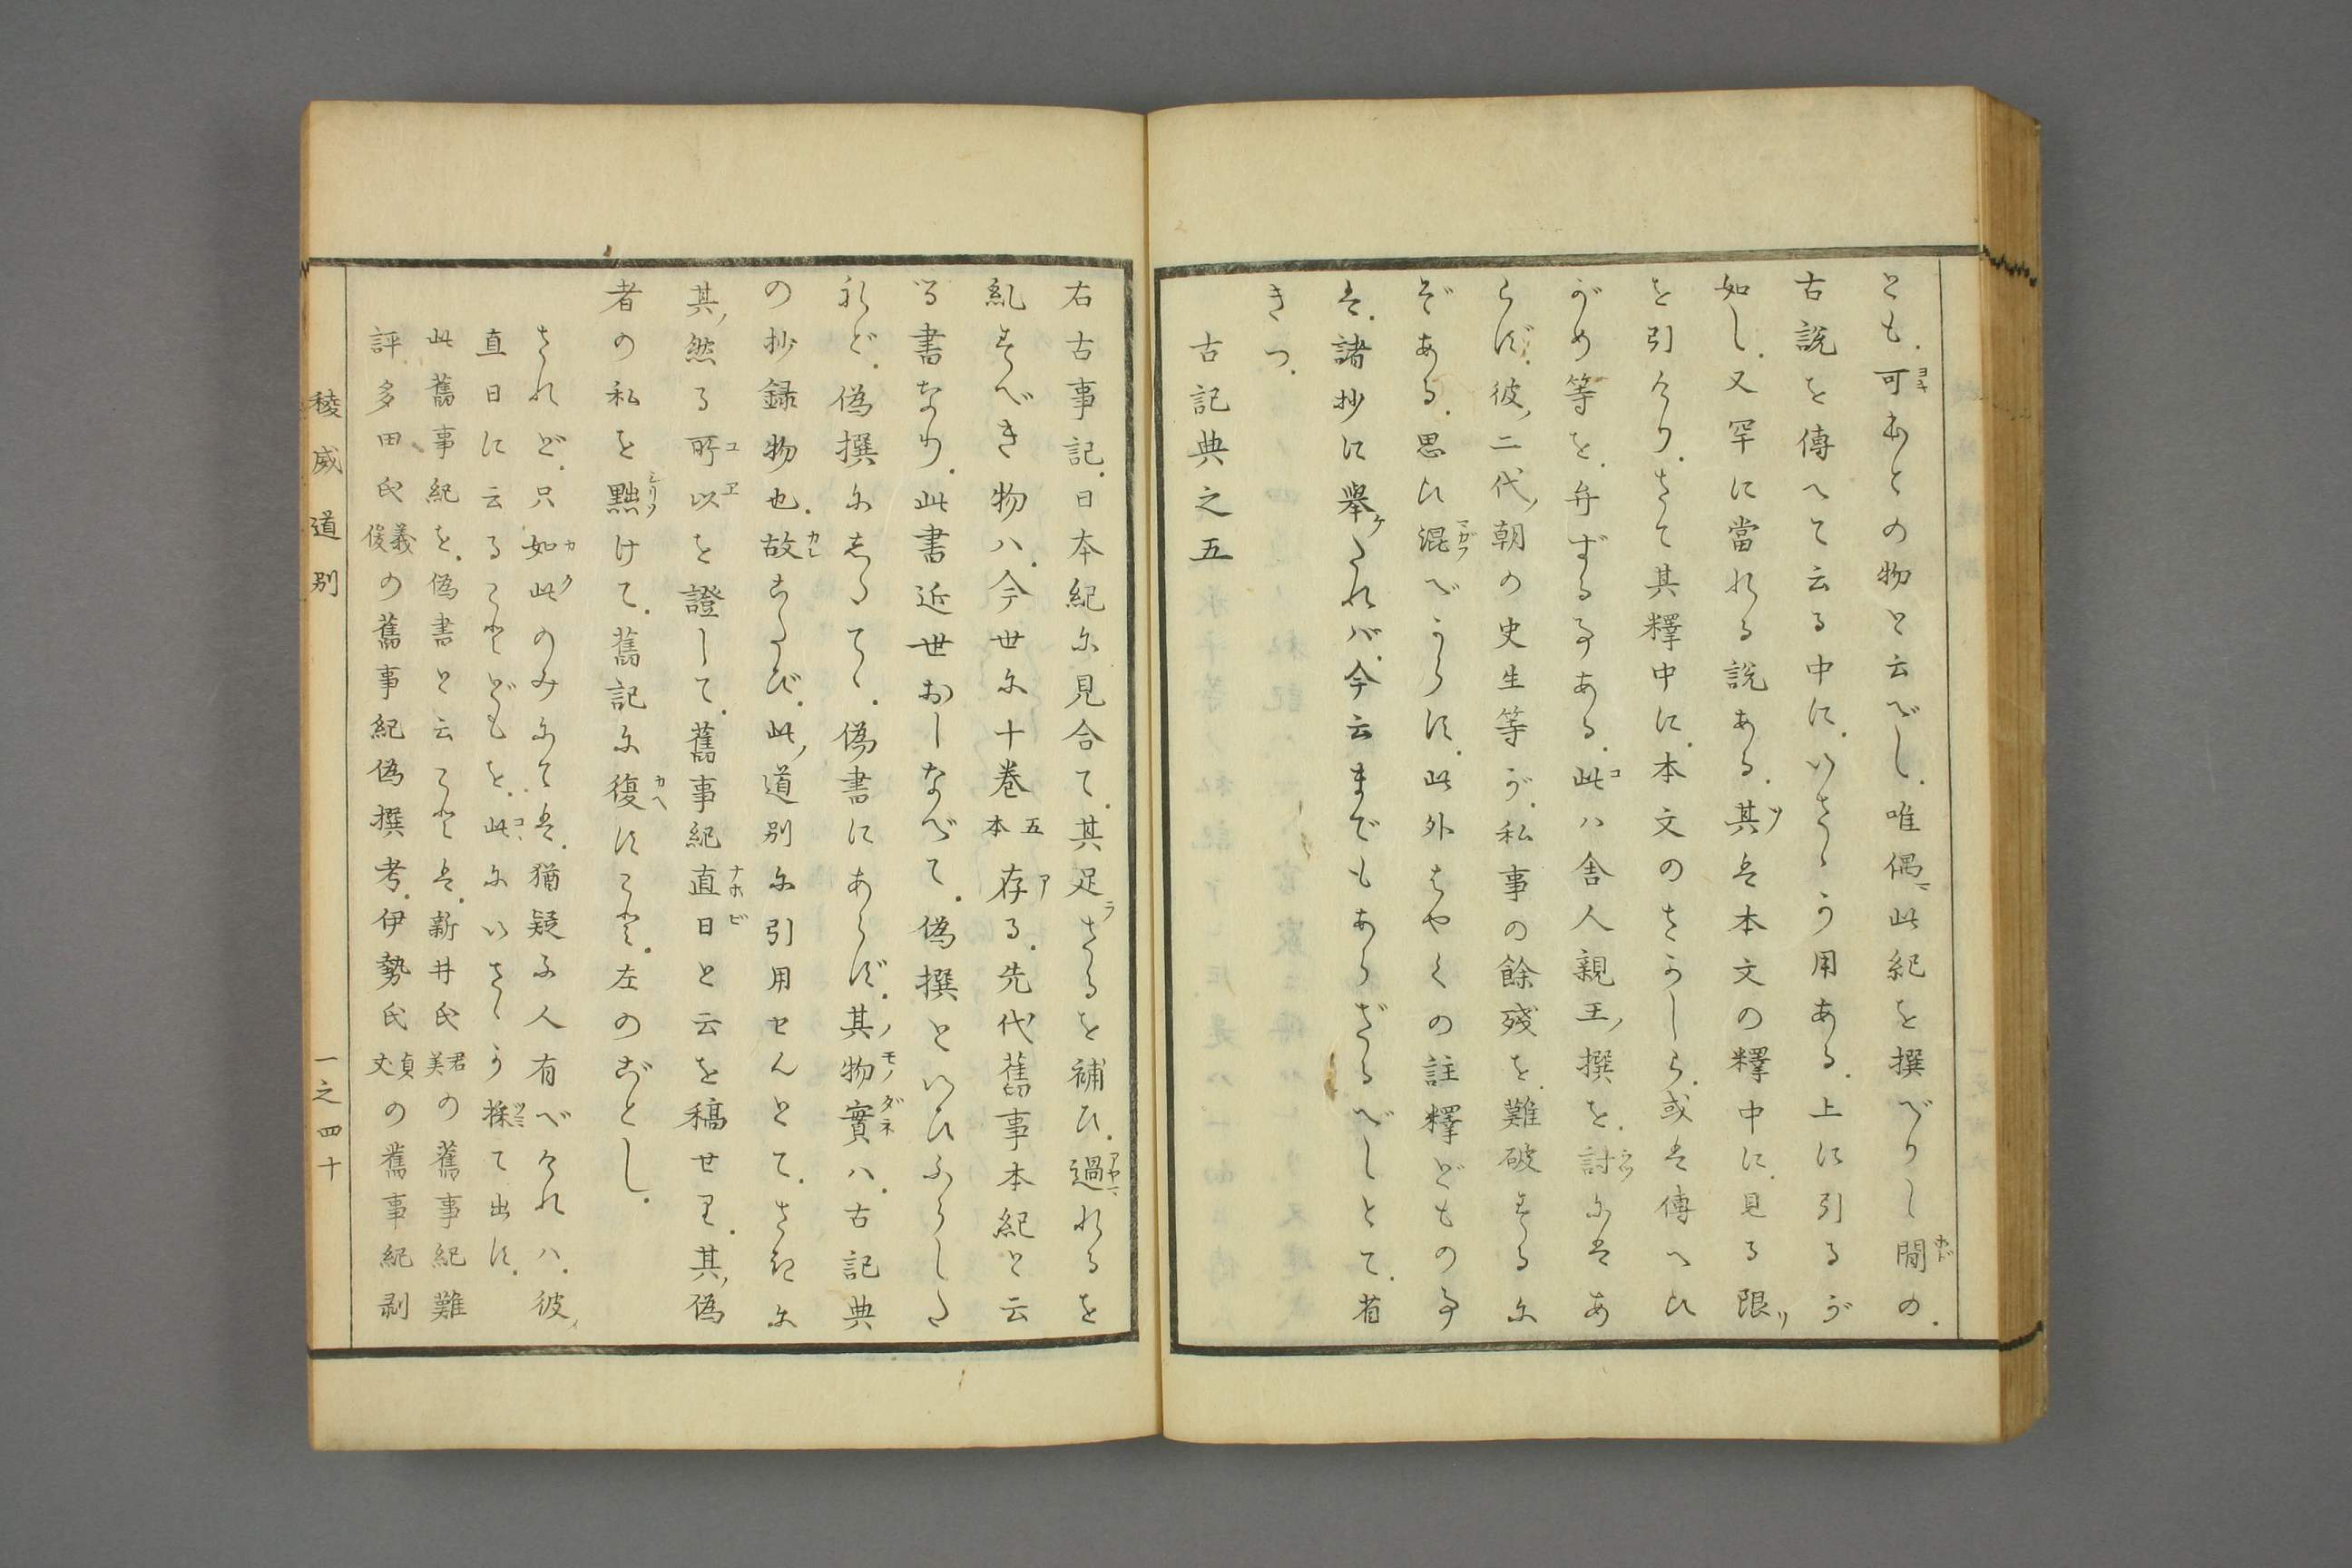 とも。可きあとの物と云べし。唯偶此紀を撰べりし間の。
古説を傳へて云る中に。いさゝか用ある。上に引るが
如し。又罕に當れる説ある。其は本文の釋中に。見る限り
を引けり。さて其釋中に。本文のさかしら。或は傳へひ
がめ等を。弁ずる事ある。此ハ舎人親王ノ撰を。討には あ
らず。彼ノ二代ノ朝の史生等が。私事の餘残を。難破するに
ぞある。思ひ混べからず。此外はやくの註釋どもの事
は。諸抄に擧たれバ。今云までもあらざるべしとて。省
きつ。
古記典之五
右古事記。日本紀に見合て。其足さるを補ひ。過れるを
糺すべき物ハ。今世に十巻 五本 存る。先代舊事本紀と云
る書なり。此書近世おしなべて。偽撰といひふらした
れど。偽撰にあらで。偽書にあらず。其ノ物實ハ。古記典
の抄録物也。故こたび。此ノ道別に引用せんとて。さきに
其ノ然る所以を證して。舊事紀直日と云を稿せり。其ノ偽
者の私を黜けて。舊記に復すこと。左のごとし。
されど。只如此のみにては。猶疑ふ人有べけれハ。彼ノ
直日に云ることどもを。此にいさゝか採て出す。
此舊事紀を。偽書と云ことは。新井氏 君美 の舊事紀難
評。多田氏 義俊 の舊事紀偽撰考。伊勢氏 貞丈 の舊事紀剥
稜威道別
一之四十